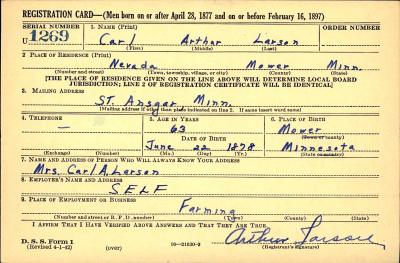 REGISTRATION CARD—(Men born on or after April 28, 1877 and on or before February 16, 1897)
SERIAL NUMBER 1. NAME (Print) ORDER NUMBER
U 1269 Carl Arthur Larson
(First) (Middle) (Last)
2. PLACE OF RESIDENCE (Print)
Nevada Mower Minn.
(Number and street) (Town, township, village, or city) (County) (State)
[THE PLACE OF RESIDENCE GIVEN ON THE LINE ABOVE WILL DETERMINE LOCAL BOARD
JURISDICTION; LINE 2 OF REGISTRATION CERTIFICATE WILL BE IDENTICAL]
3. MAILING ADDRESS
ST. Ansgar Minn.
[Mailing address if other than place indicated on line 2. If same insert word same]
4. TELEPHONE 5. AGE IN YEARS 6. PLACE OF BIRTH
— 63 Mower
DATE OF BIRTH (Town or county)
June 22 1878 Minnesota
(Exchange) (Number) (Mo.) (Day) (Yr.) (State or country)
7. NAME AND ADDRESS OF PERSON WHO WILL ALWAYS KNOW YOUR ADDRESS
Mrs. Carl A. Larson
8. EMPLOYER'S NAME AND ADDRESS
SELF
9. PLACE OF EMPLOYMENT OR BUSINESS
Farming
(Number and street or R. F. D. number) (Town) (County) (State)
I AFFIRM THAT I HAVE VERIFIED ABOVE ANSWERS AND THAT THEY ARE TRUE.
D. S. S. Form 1
(Revised 4-1-42) (over) 16—21630-2 Arthur Larson
(Registrant's signature)